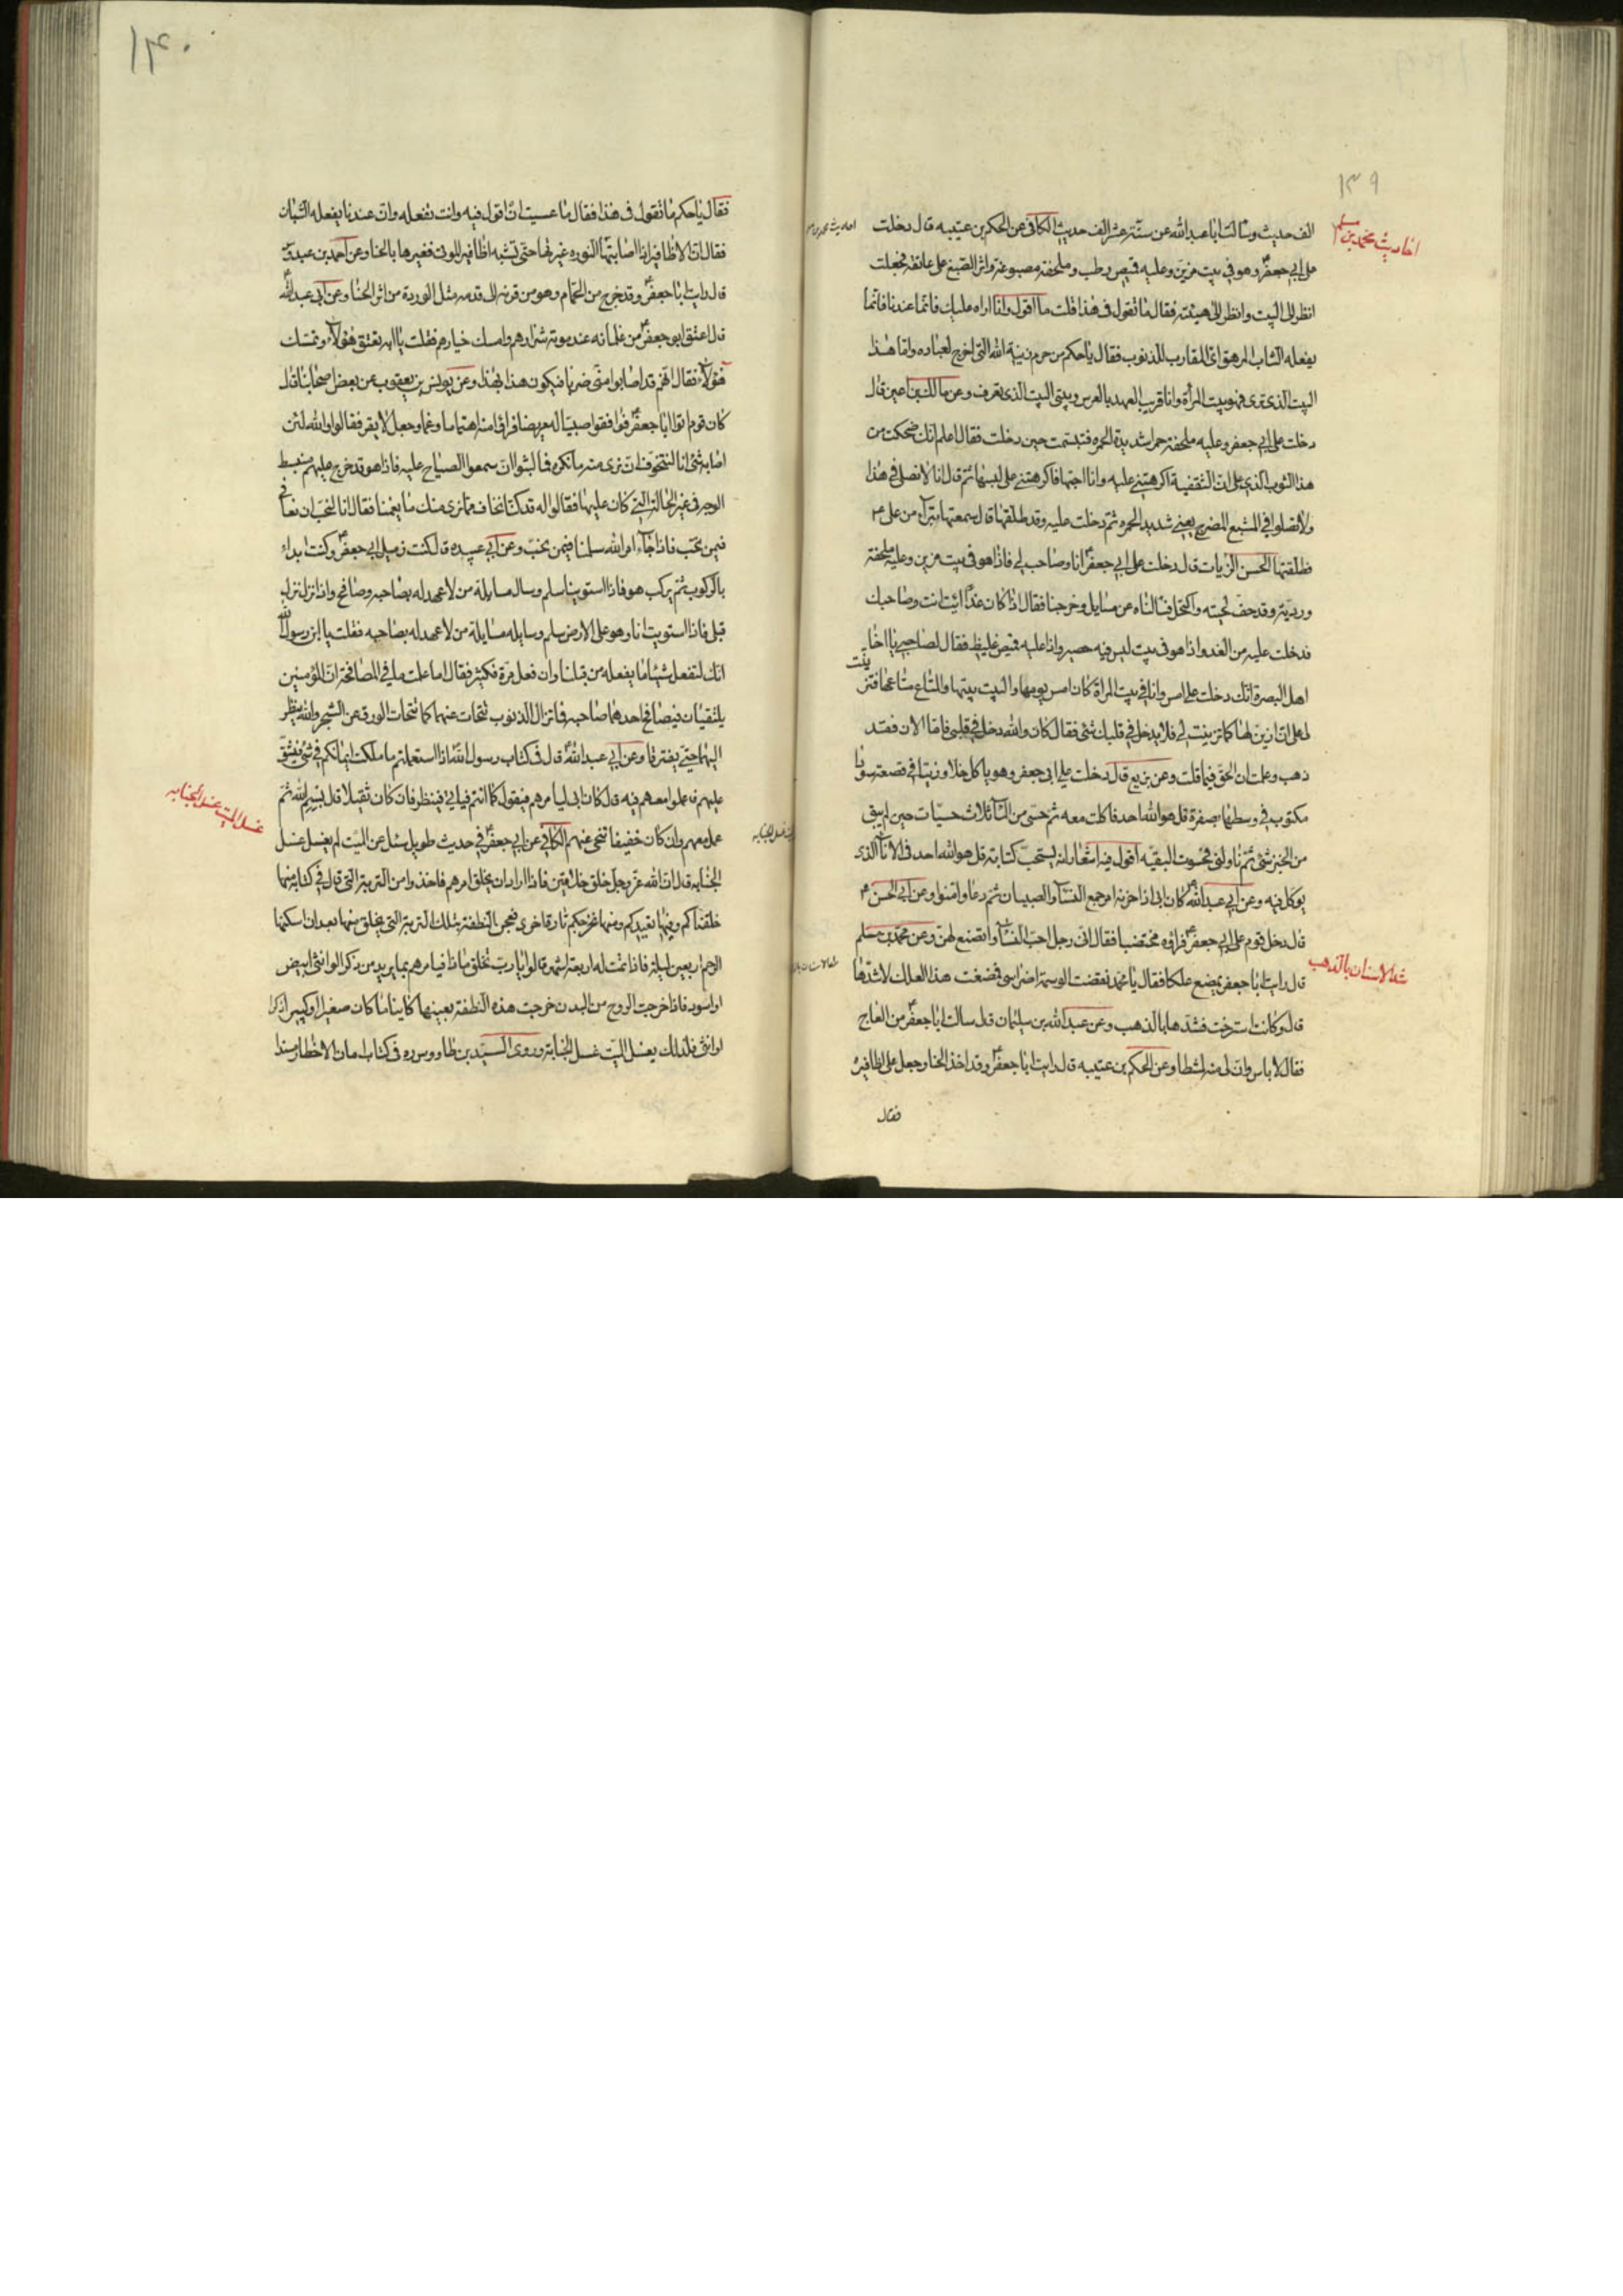 ١٣٩
احاديث محمد بن مسلم
الف حديث وسالت ابا عبد الله عن ستة عشر الف حديث الكافى عن الحكم بن عتيبه قال دخلت
على ابى جعفر ع وهو فى بيت مزين وعليه قميص رطب وملحفة مصبوغة واثر الصبغ على عاتقه فجعلت
انظر الى البيت وانظر الى هيئته فقال ما تقول فى هذا قلت ما اقول وانا اراه عليك فاما عندنا فانما
يفعله الشاب المرهق اى المقارب للذنوب فقال يا حكم من حرم زينة الله التى اخرج لعباده واما هذا
البيت الذى ترى فهو بيت المرأة وانا قريب العهد بالعرس وبيتى البيت الذى تعرف وعن مالك بن اعين قال
دخلت على ابى جعفر وعليه ملحفة حمرا شديدة الحمره فتبسمت حين دخلت فقال اعلم انك ضحكت من
هذا الثوب الذى على ان الثقفية اكرهتنى عليه وانا احبها فاكرهتنى على لبسها ثم قال انا لا نصلى فى هذا
ولا تصلوا فى المشبع المضرج يعنى شديد الحمره ثم دخلت عليه وقد طلقها قال سمعتها تتبراء من على ع
فطلقتها الحسن الزيات قال دخلت على ابى جعفر ع انا وصاحب لى فاذا هو فى بيت مزين وعليه ملحفة
ورديّة وقد حف لحيته واكتحل فسالناه عن مسايل وخرجنا فقال اذا كان غدا ائت انت وصاحبك
فدخلت عليه من الغد واذا هو فى بيت ليس فيه حصير واذا عليه قميص غليظ فقال لصاحبى يا اخا
اهل البصرة انك دخلت على امس وانا فى بيت المراة كان امس يومها والبيت بيتها والمتاع متاعها فتزينت
لى على ان ازين لها كما تزينت لى فلا يدخل فى قلبك شئ فقال كان والله دخل فى قلبى فاما الان فقد
ذهب وعلمت ان الحق فيما قلت وعن بزيع قال دخلت على ابى جعفر وهو ياكل خلا وزيتا فى قصعة سودا
مكتوب فى وسطها بصفرة قل هو الله احد فاكلت معه ثم حسى من الماء ثلاث حسيات حين لم يبق
من الخبز شئ ثم ناولنى فحسوت البقيه اقول فيه اشعار انه يستحب كتابة قل هو الله احد فى الاناء الذى
يوكل فيه وعن ابى عبد الله ع كان ابى اذا حزنه امر جمع النساء والصبيان ثم دعا وامنوا وعن ابى الحسن ع
قال دخل قوم على ابى جعفر ع فراوه مختضبا فقال انى رجل احب النساء وانا اتصنع لهن وعن محمد بن مسلم
شد الاسنان بالذهب
قال رايت ابا جعفر يمضغ علكا فقال يا محمد نقضت الوسمة اضراسى فمضغت هذا العلك لاشدها
قال وكانت استرخت فشدها بالذهب وعن عبد الله بن سليمان قال سالت ابا جعفر ع من العاج
فقال لا باس وان لى منه لمشطا وعن الحكم بن عتيبه قال رايت ابا جعفر ع وقد اخذ الحنا وجعل على اظافيره
فقال
١٤٠
فقال يا حكم ما تقول فى هذا فقال ما عسيت ان اقول فيه وانت تفعله وان عندنا يفعله الشبان
فقال ان الاظافير اذا اصابتها النوره غيرتها حتى تشبه اظافير الموتى فغيرها بالحنا وعن احمد بن عبدوس
قال رايت ابا جعفر ع وقد خرج من الحمام وهو من قرنه الى قدمه مثل الوردة من اثر الحنا وعن ابى عبد الله ع
قال اعتق ابو جعفر ع من غلمانه عند موته شرارهم وامسك خيارهم فقلت يا ابه تعتق هؤلاء وتمسك
هؤلاء فقال انهم قد اصابوا منى ضربا فيكون هذا بهذا وعن يونس بن يعقوب عن بعض اصحابنا قال
كان قوم اتوا ابا جعفر ع فوافقوا صبيا له مريضا فراوا منه اهتماما وغما وجعل لا يقر فقالوا والله لئن
اصابه شئ انا لنتخوف ان نرى منه ما نكره فما لبثوا ان سمعوا الصياح عليه فاذا هو قد خرج عليهم منبسط
الوجه فى غير الحالة التى كان عليها فقالوا له قد كنا نخاف مما نرى منك ما يغمنا فقال انا لنحب ان نعافى
فيمن نحب فاذا جاء امر الله سلمنا فيمن نحب وعن ابى عبيده قال كنت زميل ابى جعفر ع وكنت ابداء
بالركوب ثم يركب هو فاذا استوينا سلم وسال مسايلة من لا عهد له بصاحبه وصافح واذا نزل نزل
قبلى فاذا استويت انا وهو على الارض سلم وسايله مسايلة من لا عهد له بصاحبه فقلت يا ابن رسول الله
انك لتفعل شيئا ما يفعله من قبلنا وان فعل مرة فكثير فقال اما علمت ما فى المصافحة ان المؤمنين
يلتقيان فيصافح احدهما صاحبه فما تزال الذنوب تتحات عنهما كما تتحات الورق عن الشجر والله ينظر
اليهما حتى يفترقا وعن ابى عبد الله ع قال فى كتاب رسول الله اذا استعملتم ما ملكت ايمانكم فى شئ فيشق
عليهم فاعملوا معهم فيه قال كان ابى ليامرهم فيقول كما انتم فياتى فينظر فان كان ثقيلا قال بسم الله ثم
غسل الميت غسل الجنابه
عمل معهم وان كان خفيفا تنحى عنهم الكافى عن ابى جعفر ع فى حديث طويل سئل عن الميت لم يغسل غسل
الجنابه قال ان الله عز وجل خلق خلاقين فاذا اراد ان يخلق امرهم فاخذوا من التربة التى قال فى كتابه منها
خلقناكم وفيها نعيدكم ومنها نخرجكم تارة اخرى فعجن النطفة بتلك التربة التى يخلق منها بعد ان اسكنها
الرحم اربعين ليلة فاذا تمت له اربعة اشهر قالوا يا رب نخلق ماذا فيامرهم بما يريد من ذكر او انثى ابيض
او اسود فاذا خرجت الروح من البدن خرجت هذه النطفة بعينها كاينا ما كان صغيرا او كبيرا ذكرا
او انثى فلذلك يغسل الميت غسل الجنابة وروى السيد بن طاووس ره فى كتاب امان الاخطار مسندا